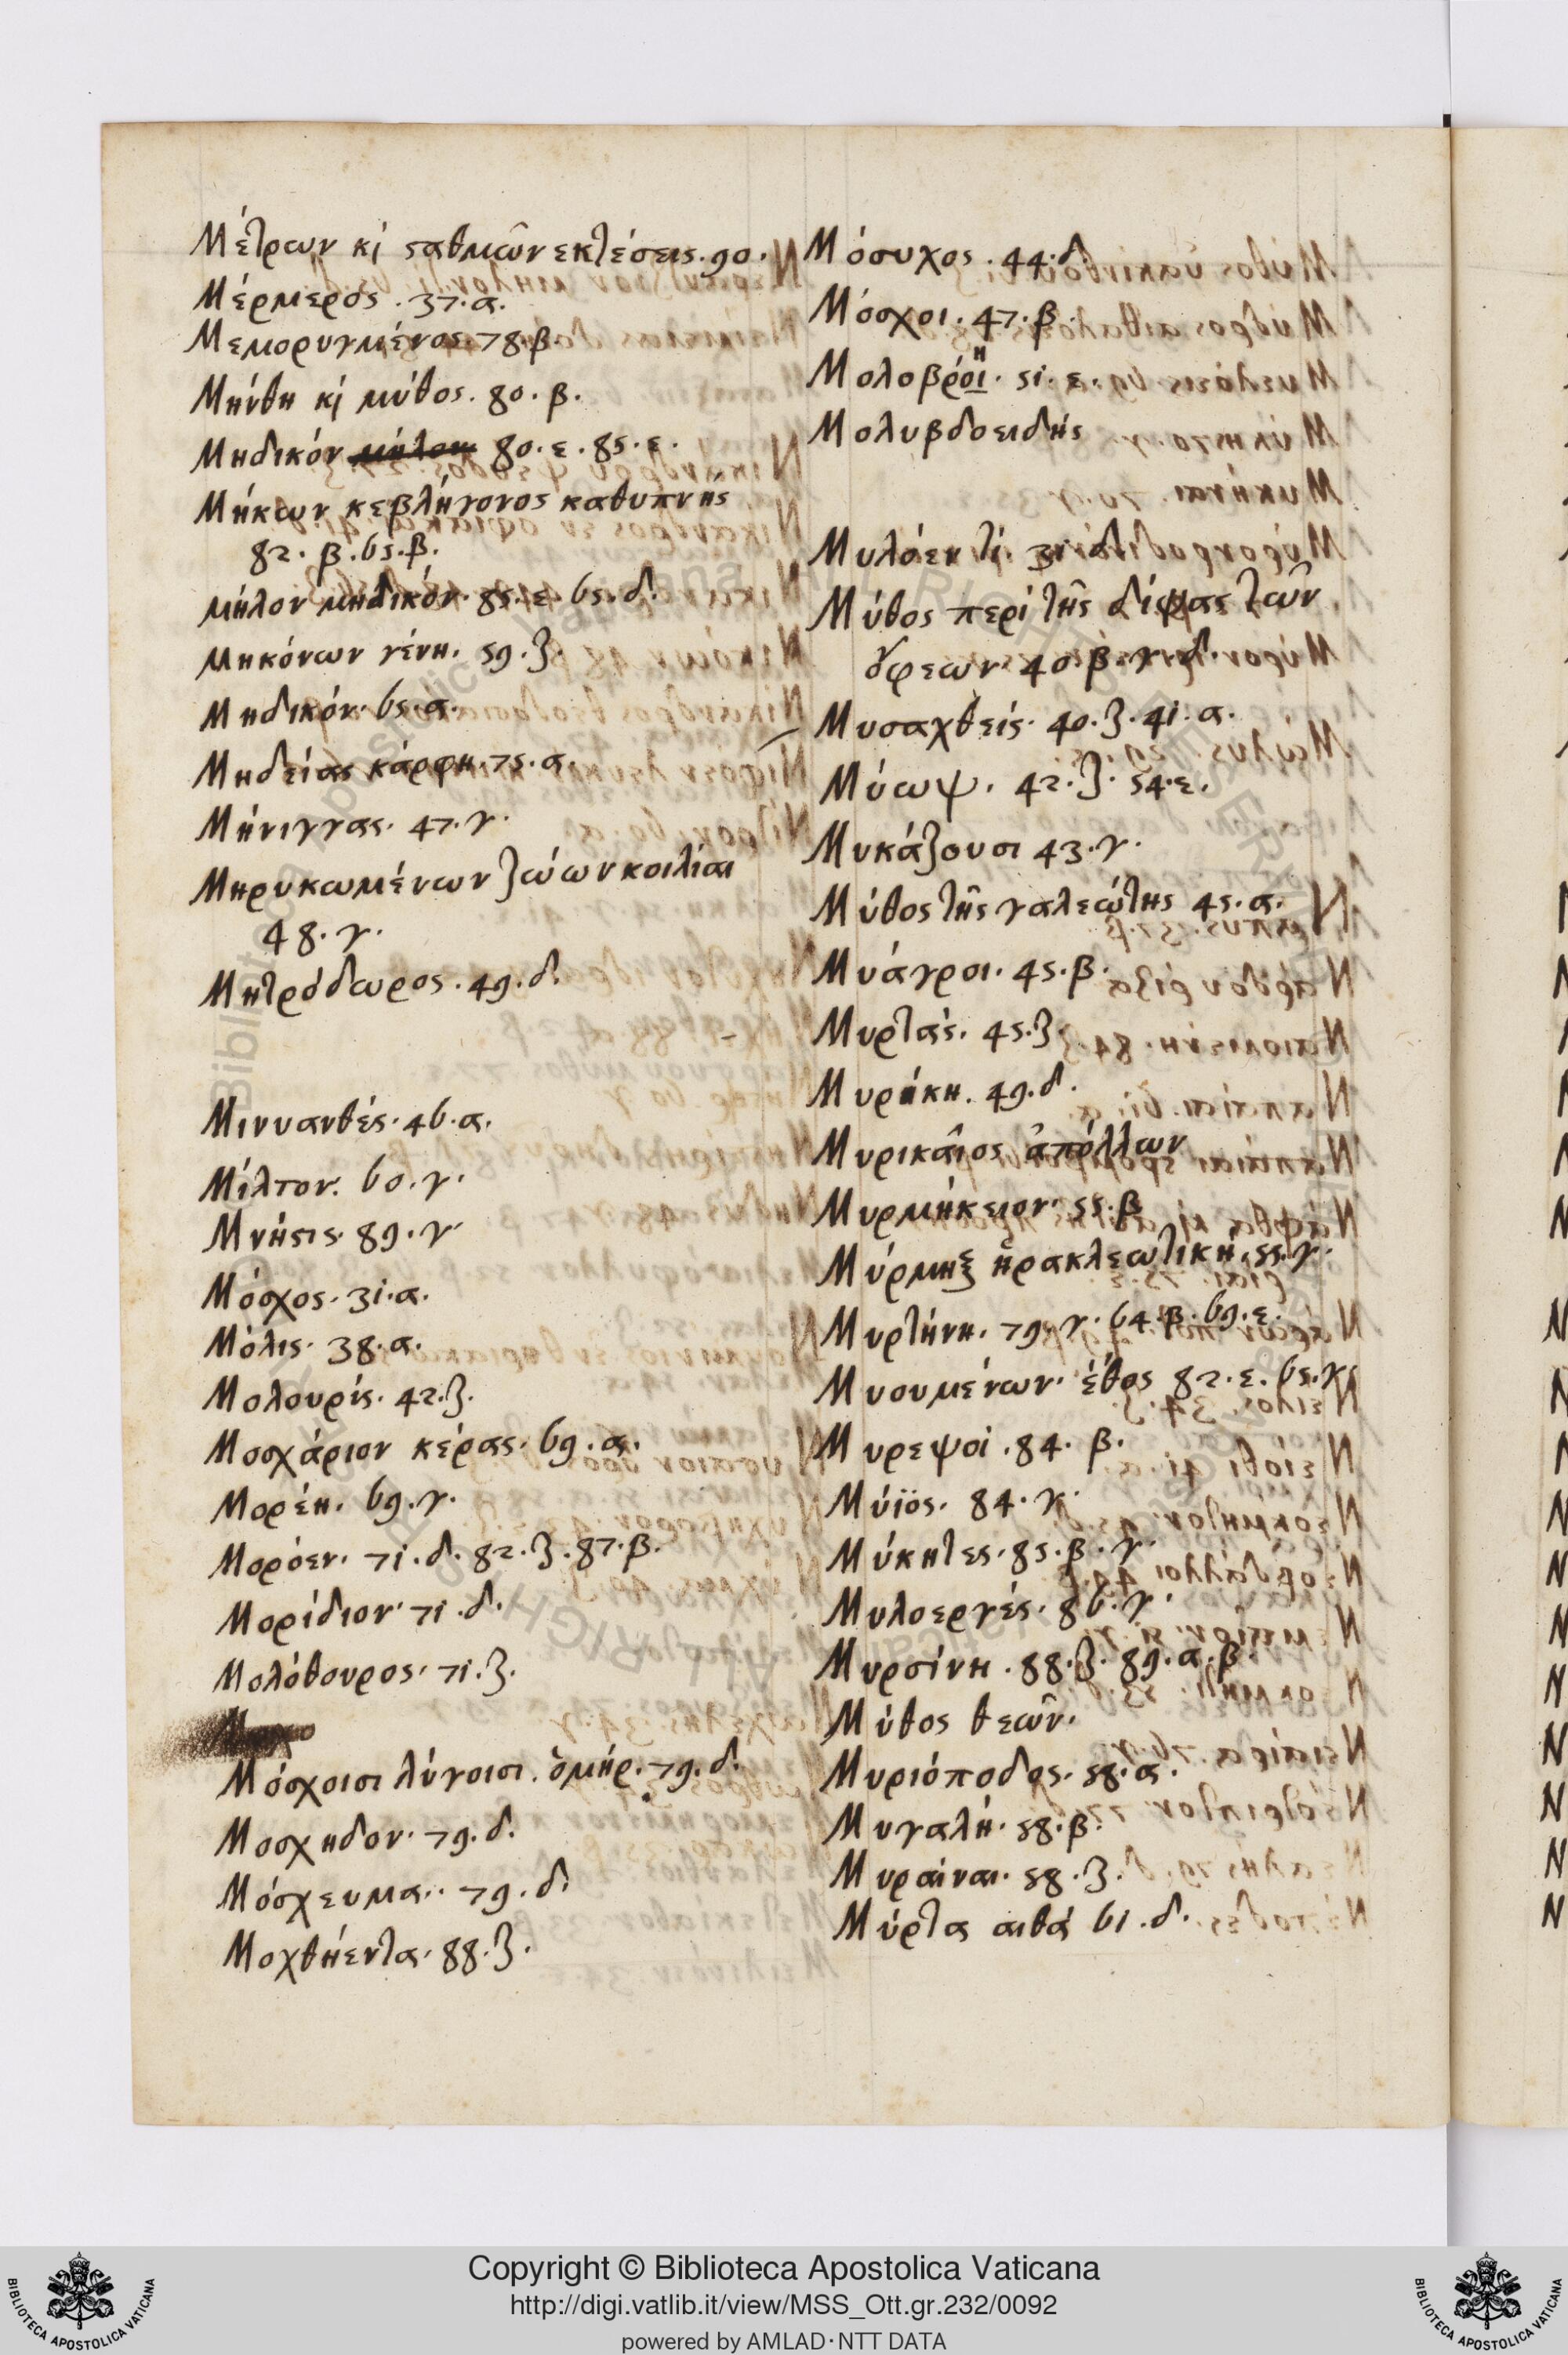 Μέτρων κ̀ σαθμῶν εκτέσεις. 90.
Μέρμερος. 37. α.
Μεμορυγμένος. 78. β
Μήνθη κ̀ μύθος. 80. β.
Μηδικόν μήλον 80. ε. 85. ε.
Μήκων κεβλήγονος καθυπνής
82. β. 65. β.
μήλον μηδικόν. 85. ε. 65. δ.
μηκόνων γένη. 59. ζ.
Μηδικόν. 65. α.
Μηδείας κάρφη. 75. α.
Μήνιγγας. 47. γ.
Μηρυκωμένων ζώων κοιλίαι
48. γ.
Μητρόδωρος. 49. δ.
Μινυανθές. 46. α.
Μίλτον. 60. γ.
Μνήσις. 89. γ
Μόσχος. 31. α.
Μόλις. 38. α.
Μολουρίς. 42. ζ.
Μοσχάριον κέρας. 69. α.
Μορέη. 69. γ.
Μορόεν. 71. δ. 82. ζ. 87. β.
Μορίδιον. 71. δ.
Μολόθουρος. 71. ζ.
Μόσχοισι λύγοισι. ὁμήρ. 79. δ.
Μοσχηδον. 79. δ.
Μόσχευμα. 79. δ.
Μοχθήεντα. 88. ζ.
Μόσυχος. 44. δ
Μόσχοι. 47. β.
Μολοβρόι. 51. ε.
Μολυβδοειδής
Μυλόεντι. 31. δ
Μύθος περί τῆς δίψας τῶν
ὄφεων. 40. β. γ. δ.
Μυσαχθείς. 40. ζ. 41. α.
Μύωψ. 42. ζ. 54. ε.
Μυκάζουσι 43. γ.
Μύθος τῆς γαλεώτης 45. α.
Μυάγροι. 45. β.
Μυρτάς. 45. ζ.
Μυράκη. 49. δ.
Μυρικαῖος ἀπόλλων
Μυρμήκειον. 55. β
Μύρμηξ ἡρακλεωτική. 55. γ.
Μυρτήνη. 79. γ. 64. β. 69. ε.
Μυουμένων. ἔθος 82. ε. 65. γ.
Μυρεψοί. 84. β.
Μύϊός. 84. γ.
Μύκητες. 85. β. γ.
Μυλοεργές. 86. γ.
Μυρσίνη. 88. ζ. 89. α. β.
Μύθος θεῶν.
Μυριόποδος. 58. α.
Μυγαλή. 58. β.
Μυραίναι. 58. ζ.
Μύρτα αιθά 61. δ.
Copyright © Biblioteca Apostolica Vaticana
http://digi.vatlib.it/view/MSS_Ott.gr.232/0092
powered by AMLAD·NTT DATA
BIBLIOTECA APOSTOLICA VATICANA
BIBLIOTECA APOSTOLICA VATICANA